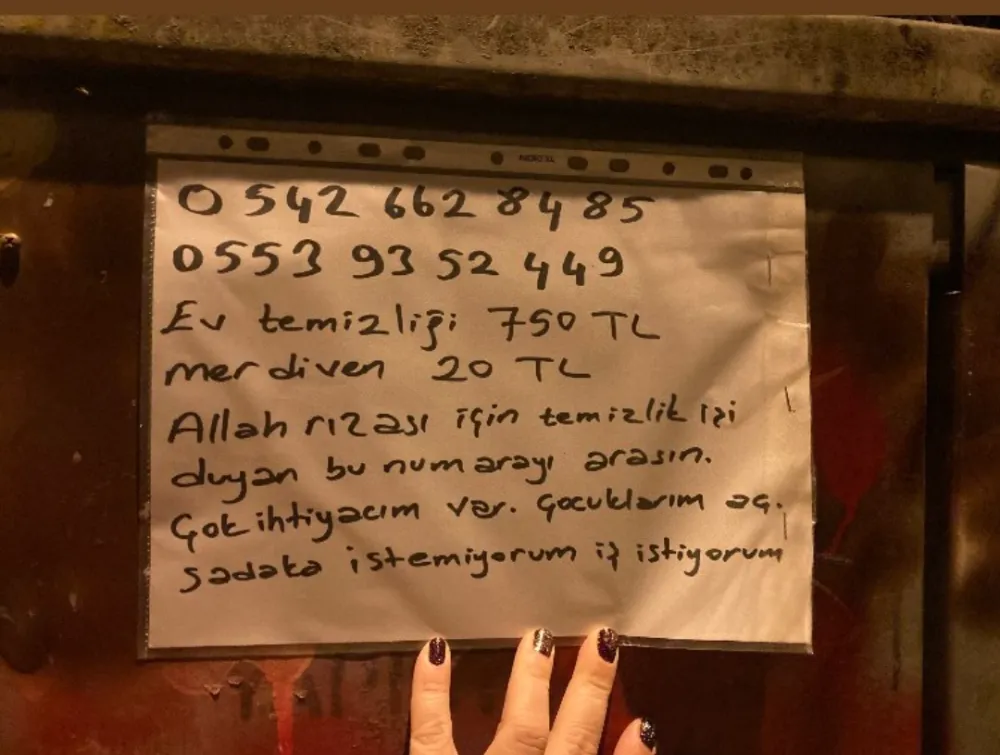 0 542 662 84 85
0553 93 52 449
Ev temizliği 750 TL
merdiven 20 TL
Allah rızası için temizlik işi
duyan bu numarayı arasın.
Çok ihtiyacım var. Çocuklarım aç.
Sadaka istemiyorum iş istiyorum